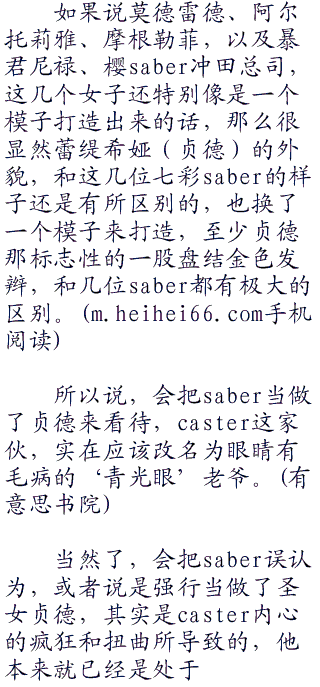 如果说莫德雷德、阿尔
托莉雅、摩根勒菲，以及暴
君尼禄、樱saber冲田总司，
这几个女子还特别像是一个
模子打造出来的话，那么很
显然蕾缇希娅（贞德）的外
貌，和这几位七彩saber的样
子还是有所区别的，也换了
一个模子来打造，至少贞德
那标志性的一股盘结金色发
辫，和几位saber都有极大的
区别。(m.heihei66.com手机
阅读)
所以说，会把saber当做
了贞德来看待，caster这家
伙，实在应该改名为眼睛有
毛病的‘青光眼’老爷。(有
意思书院)
当然了，会把saber误认
为，或者说是强行当做了圣
女贞德，其实是caster内心
的疯狂和扭曲所导致的，他
本来就已经是处于